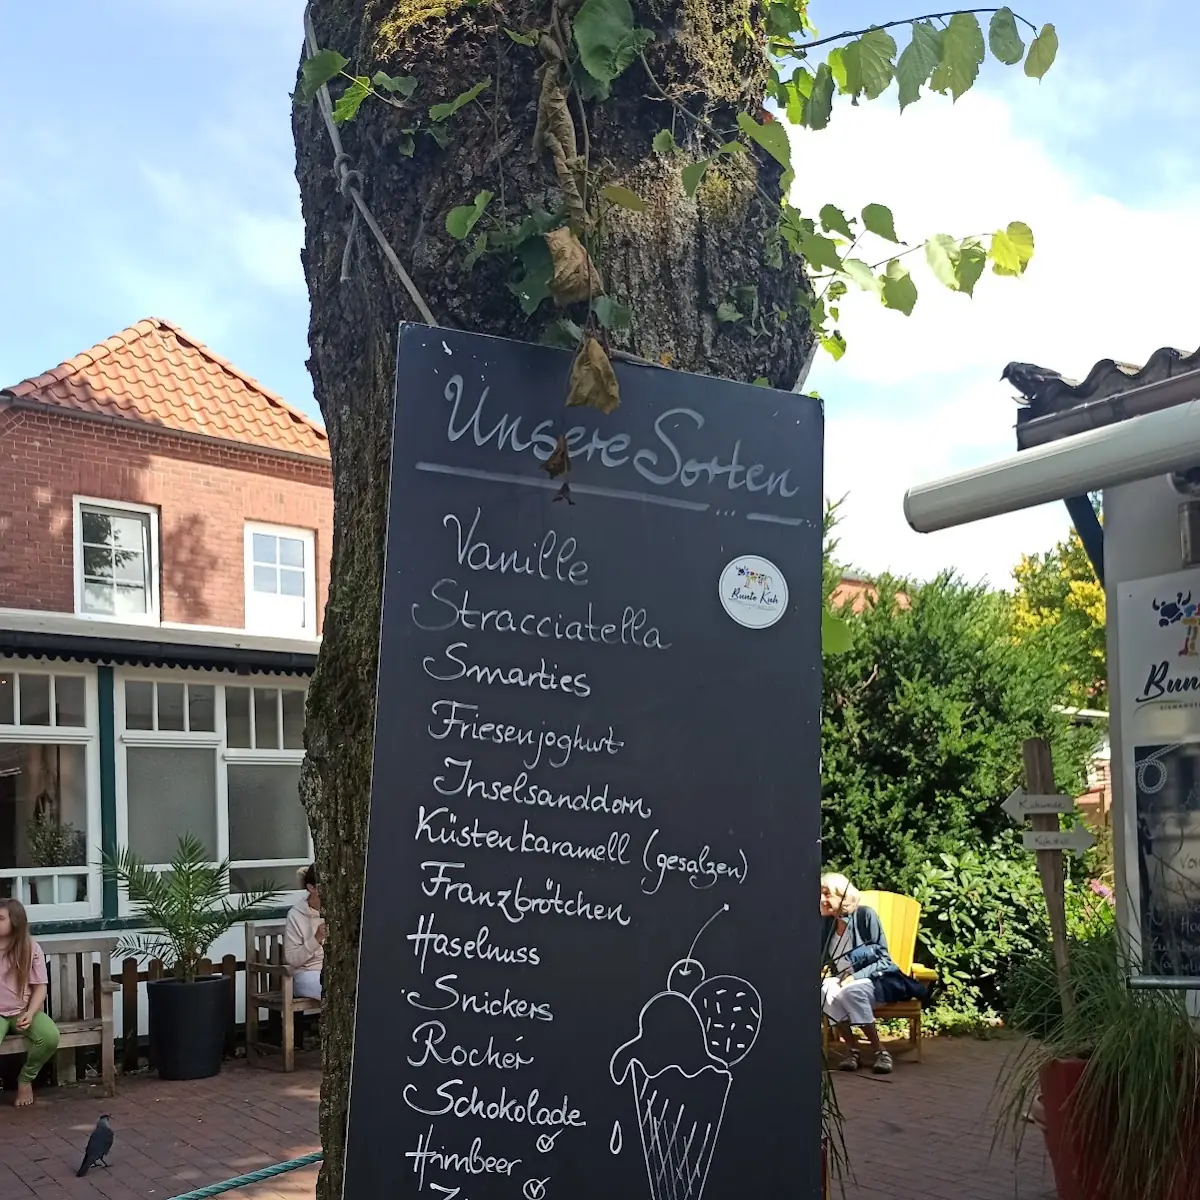 Unsere Sorten
Vanille
Stracciatella
Smarties
Friesenjoghurt
Inselsanddorn
Küstenkaramell (gesalzen)
Franzbrötchen
Haselnuss
Snickers
Rochér
Schokolade
Himbeer
Bunte Kuh